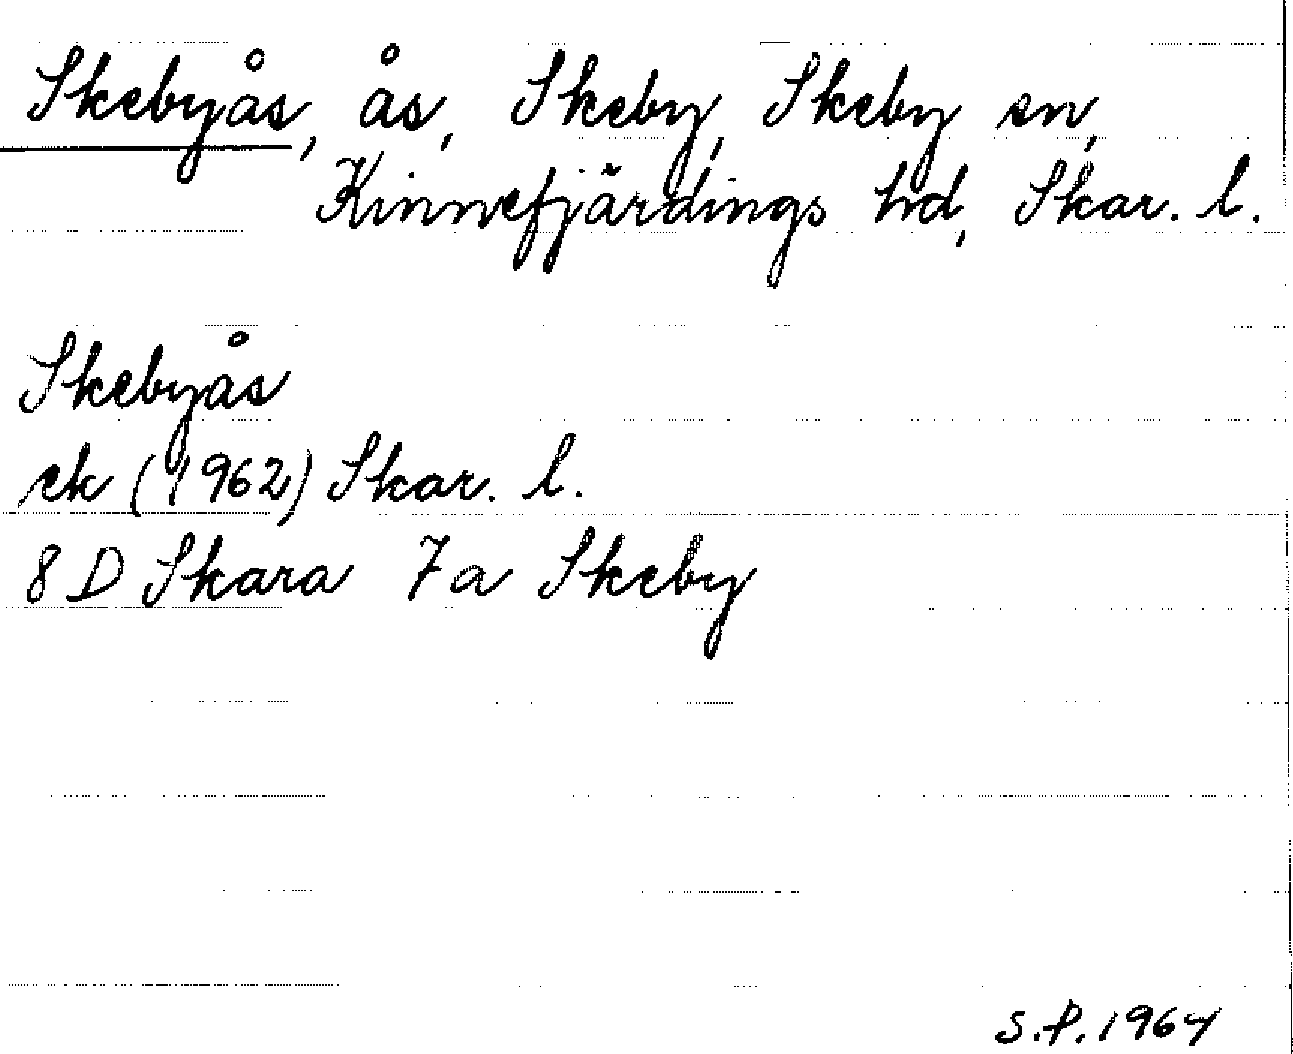 Skebyås, ås, Skeby, Skeby sn,
Kinnefjärdings hd, Skar. l.
Skebyås
ek (1962) Skar. l.
8 D Skara 7a Skeby
S.P. 1964